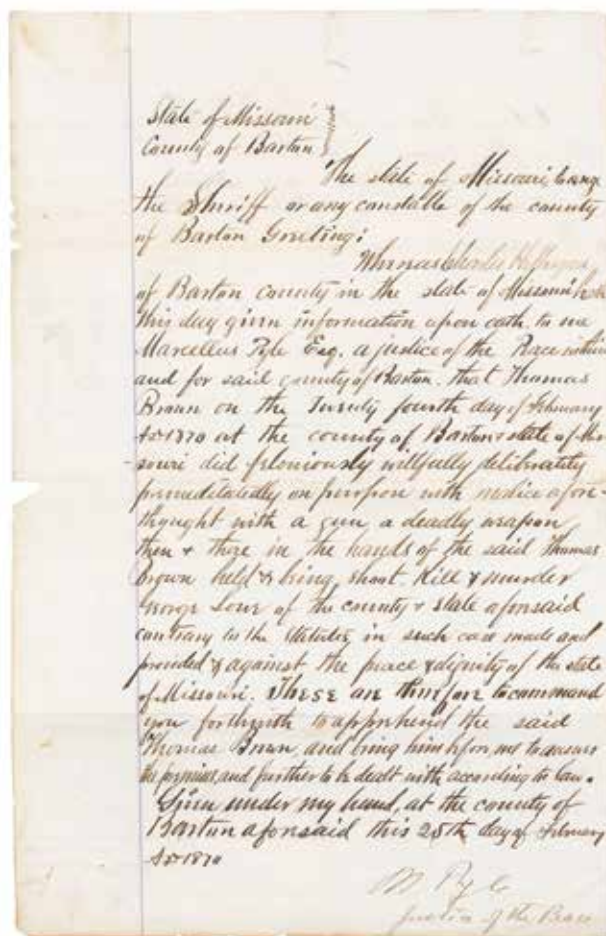 State of Missouri
County of Barton
The state of Missouri to any
the Shriff or any constable of the county
of Barton Greeting:
Whereas Charles
of Barton county in the state of Missouri has
this day given information upon oath, to me
Marcellus Pyle Esq. a justice of the Peace within
and for said county of Barton, that Thomas
Brown on the Twenty fourth day of February
AD 1870 at the county of Barton & state of Mis
souri did feloniously willfully deliberately
premeditatedly on purpose with malice afore-
thought with a gun, a deadly weapon,
then & there in the hands of the said Thomas
Brown held & being, shoot, Kill & murder
George Lowe of the county & state aforesaid
contrary to the statutes, in such case made and
provided & against the peace & dignity of the state
of Missouri. These are therefore to command
you forthwith to apprehend the said
Thomas Brown, and bring him before me to answer
the premises, and further to be dealt with according to law.
Given under my hand, at the county of
Barton aforesaid this 25th day of February
AD 1870
M Pyle
Justice of the Peace